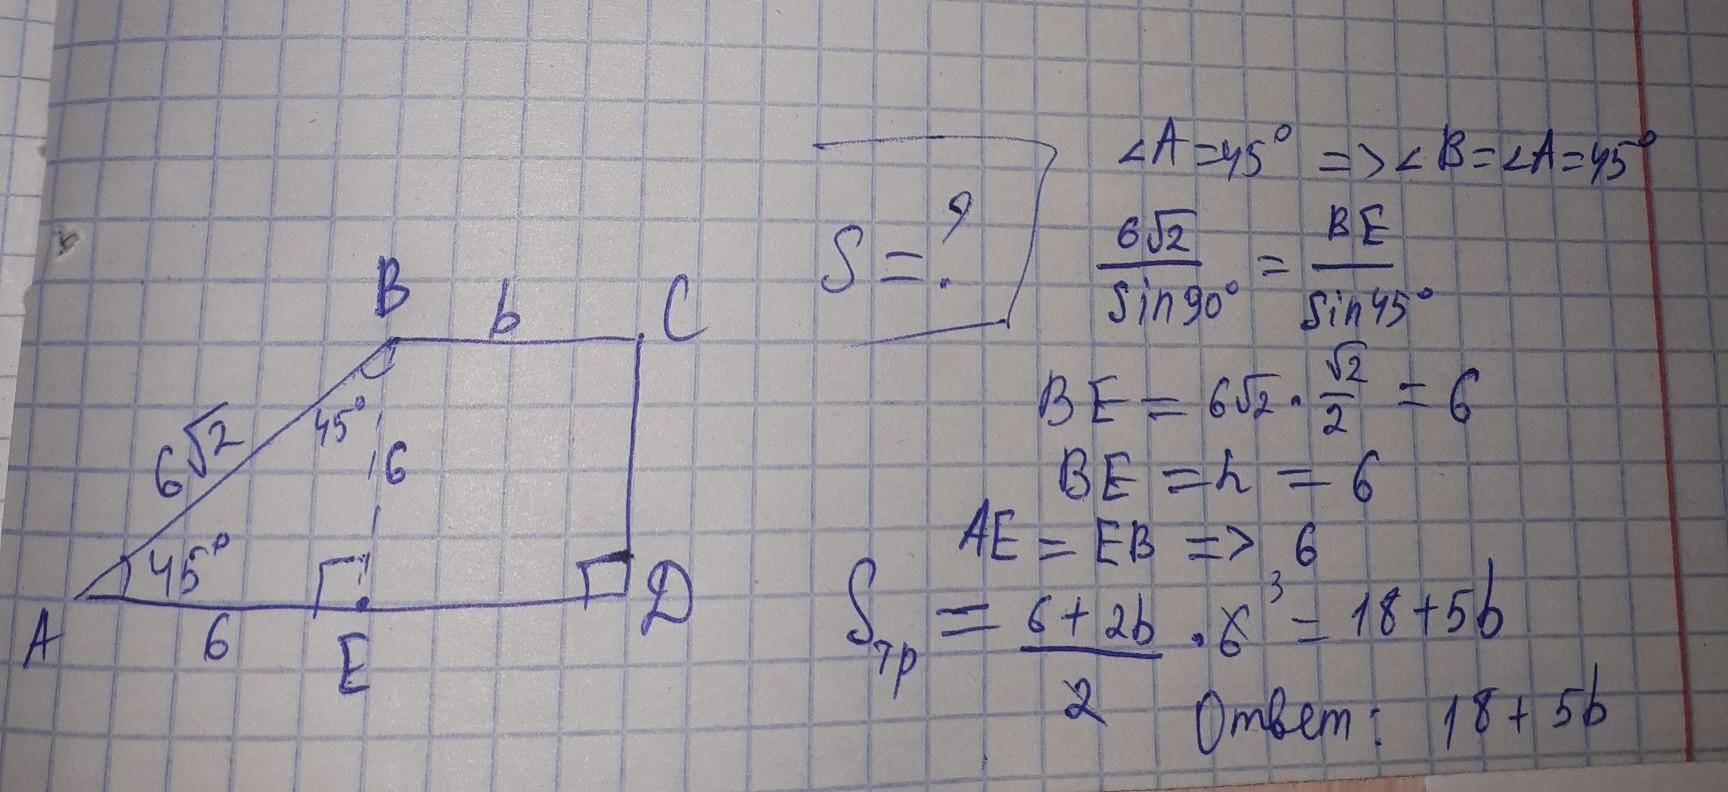 B
b
C
6√2
45°
6
45°
A
6
E
D
S = ?
∠A = 45° => ∠B = ∠A = 45°
6√2 / Sin90° = BE / Sin45°
BE = 6√2 · √2/2 = 6
BE = h = 6
AE = EB => 6
Sтр = (6 + 2b)/2 · 6 3 = 18 + 5b
Ответ: 18 + 5b